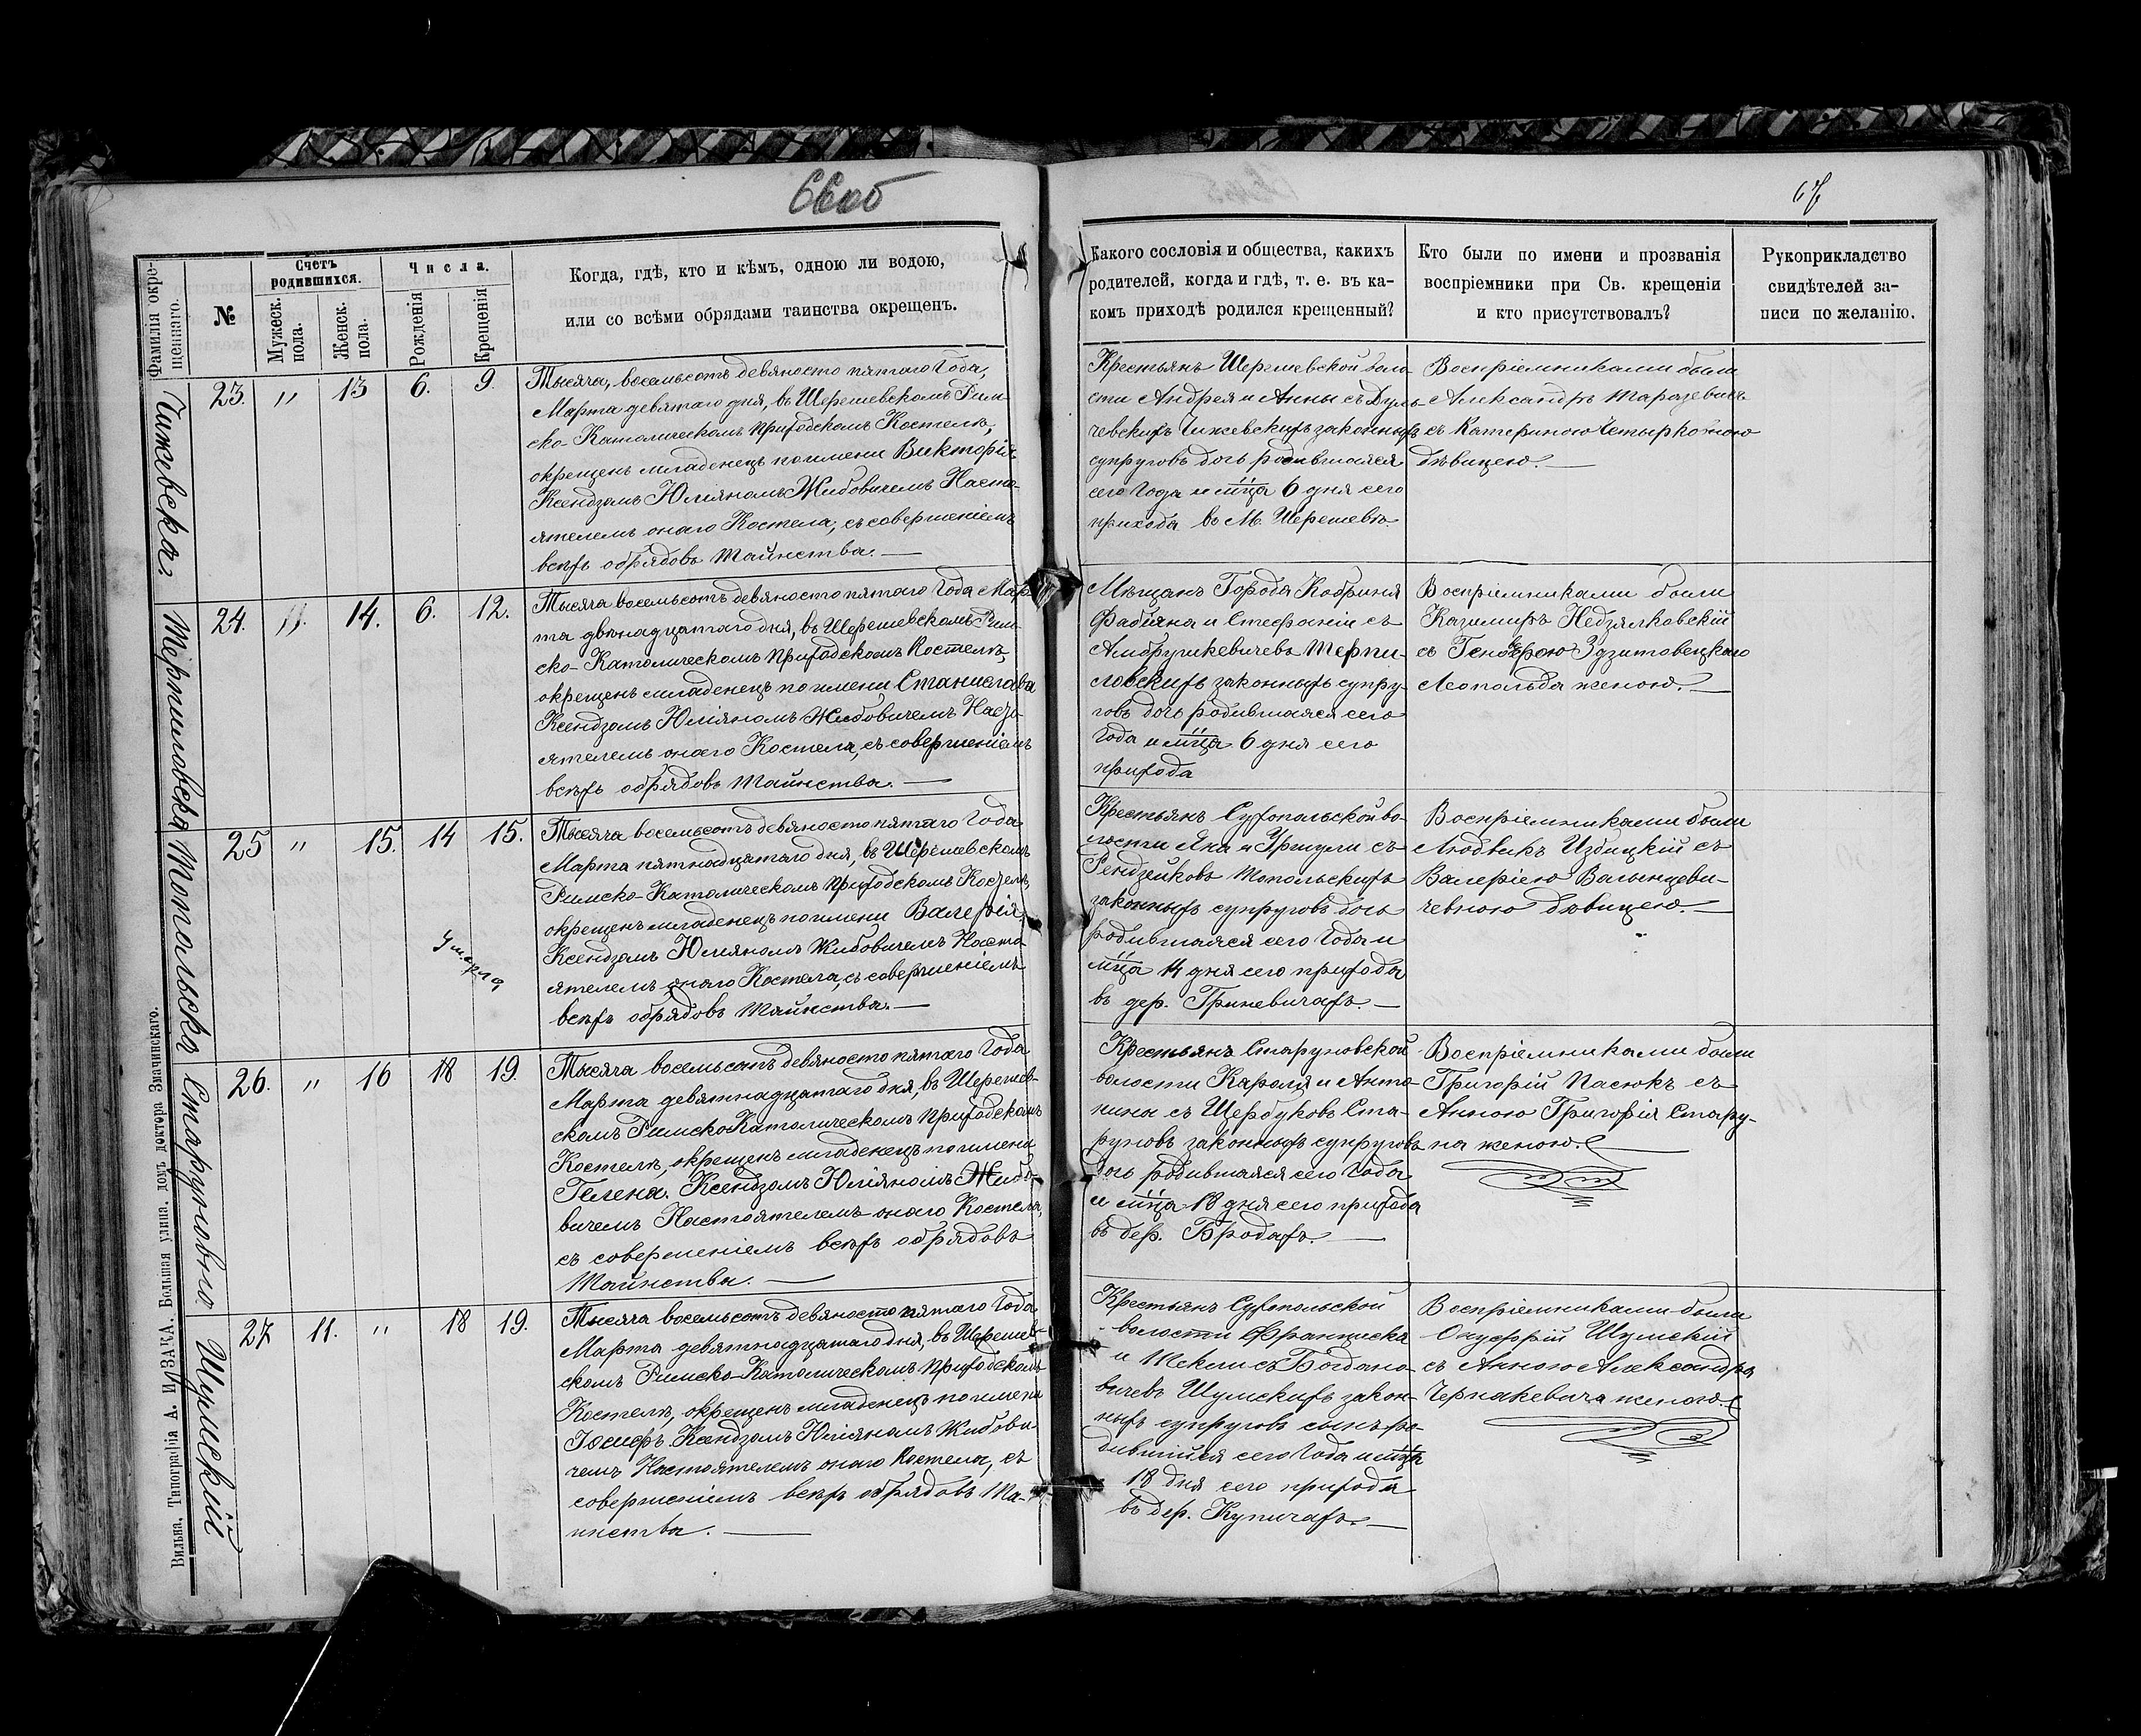 66об
67
Фамилія окре-
щеннаго.
№
Счетъ
родившихся.
Мужеск.
пола.
Женск.
пола.
Числа.
Рожденія
Крещенія
Когда, гдѣ, кто и кѣмъ, одною ли водою,
или со всѣми обрядами таинства окрещенъ.
Какого сословія и общества, какихъ
родителей, когда и гдѣ, т. е. въ ка-
комъ приходѣ родился крещенный?
Кто были по имени и прозванія
воспріемники при Св. крещеніи
и кто присутствовалъ?
Рукоприкладство
свидѣтелей за-
писи по желанію.
Чижевска
23. " 13 6. 9.
Тысяча, восемьсотъ девяносто пятаго Года,
Марта девятаго дня, въ Шерешевскомъ Рим-
ско-Католическомъ Приходскомъ Костелѣ,
окрещенъ младенецъ по имени Викторія
Ксендзомъ Юліяномъ Жибовичемъ Насто-
ятелемъ онаго Костела, съ совершеніемъ
всѣхъ обрядовъ Таинства.
Крестьянъ Шершевской воло
сти Андрея и Анны съ Дуль-
чевскихъ Чижевскихъ законныхъ
супруговъ дочь родившаяся
сего Года и мца 6 дня сего
прихода въ М. Шерешевѣ.
Воспріемниками были
Александръ Тарасевичъ
съ Катериною Четырковною
дѣвицею.
Терпиловска
24. ". 14. 6. 12.
Тысяча восемьсотъ девяносто пятаго Года Мар-
та двѣнадцатаго дня, въ Шерешевскомъ Рим-
ско-Католическомъ Приходскомъ Костелѣ,
окрещенъ младенецъ по имени Станислава
Ксендзомъ Юліяномъ Жибовичемъ Насто-
ятелемъ онаго Костела, съ совершеніемъ
всѣхъ обрядовъ Таинства.
Мѣщанъ Города Кобриня
Фабіяна и Стефаніи съ
Амбрушкевичевъ Терпи-
ловскихъ законныхъ супру-
говъ дочь родившаяся сего
Года и мца 6 дня сего
прихода
Воспріемниками были
Казимиръ Недзялковскій
съ Здзитовецкаго
Леопольда женою.
Топольска
25 " 15. 14 15.
Умерла
Тысяча восемьсотъ девяносто пятаго Года
Марта пятнадцатаго дня, въ Шерешевскомъ
Римско-Католическомъ Приходскомъ Костелѣ,
окрещенъ младенецъ по имени Валерія,
Ксендзомъ Юліяномъ Жибовичемъ Насто-
ятелемъ онаго Костела, съ совершеніемъ
всѣхъ обрядовъ Таинства.
Крестьянъ Сухопольской во-
лости Яна и Уршули съ
Рендзейковъ Топольскихъ
законныхъ супруговъ дочь
родившаяся сего Года и
мца 14 дня сего прихода
въ дер. Гриневичахъ.
Воспріемниками были
Людвикъ Избицкій съ
Валеріею Валынцеви-
чевною дѣвицею.
Старуновно
26. " 16 18 19.
Тысяча восемьсотъ девяносто пятаго Года
Марта девятнадцатаго дня, въ Шерешев-
скомъ Римско-Католическомъ Приходскомъ
Костелѣ, окрещенъ младенецъ по имени
Гелена. Ксендзомъ Юліяномъ Жибо-
вичемъ Настоятелемъ онаго Костела,
съ совершеніемъ всѣхъ обрядовъ
Таинства.
Крестьянъ Старуновской
волости Кароля и Анто-
нины съ Щербуковъ Ста-
руновъ законныхъ супруговъ
дочь родившаяся сего Года
и мца 18 дня сего прихода
въ дер. Бродахъ.
Воспріемниками были
Григорій Пасюкъ съ
Анною Григорія Стару-
на женою.
Шумскій
27 11. " 18 19.
Тысяча восемьсотъ девяносто пятаго Года
Марта девятнадцатаго дня, въ Шерешев-
скомъ Римско-Католическомъ Приходскомъ
Костелѣ, окрещенъ младенецъ по имени
Іосифъ Ксендзомъ Юліяномъ Жибови-
чемъ Настоятелемъ онаго Костела, съ
совершеніемъ всѣхъ обрядовъ Та-
инства.
Крестьянъ Сухопольской
волости Францишка
и Теклии съ Богдано-
вичевъ Шумскихъ закон-
ныхъ супруговъ сынъ ро-
дившійся сего Года и мца
18 дня сего прихода
въ дер. Купичахъ.
Воспріемниками были
Онуфрій Шумскій
съ Анною Александра
Чернакевича женою.
Вильна, Типографія А. ИЦЗАКА. Большая улица, домъ доктора Значинскаго.